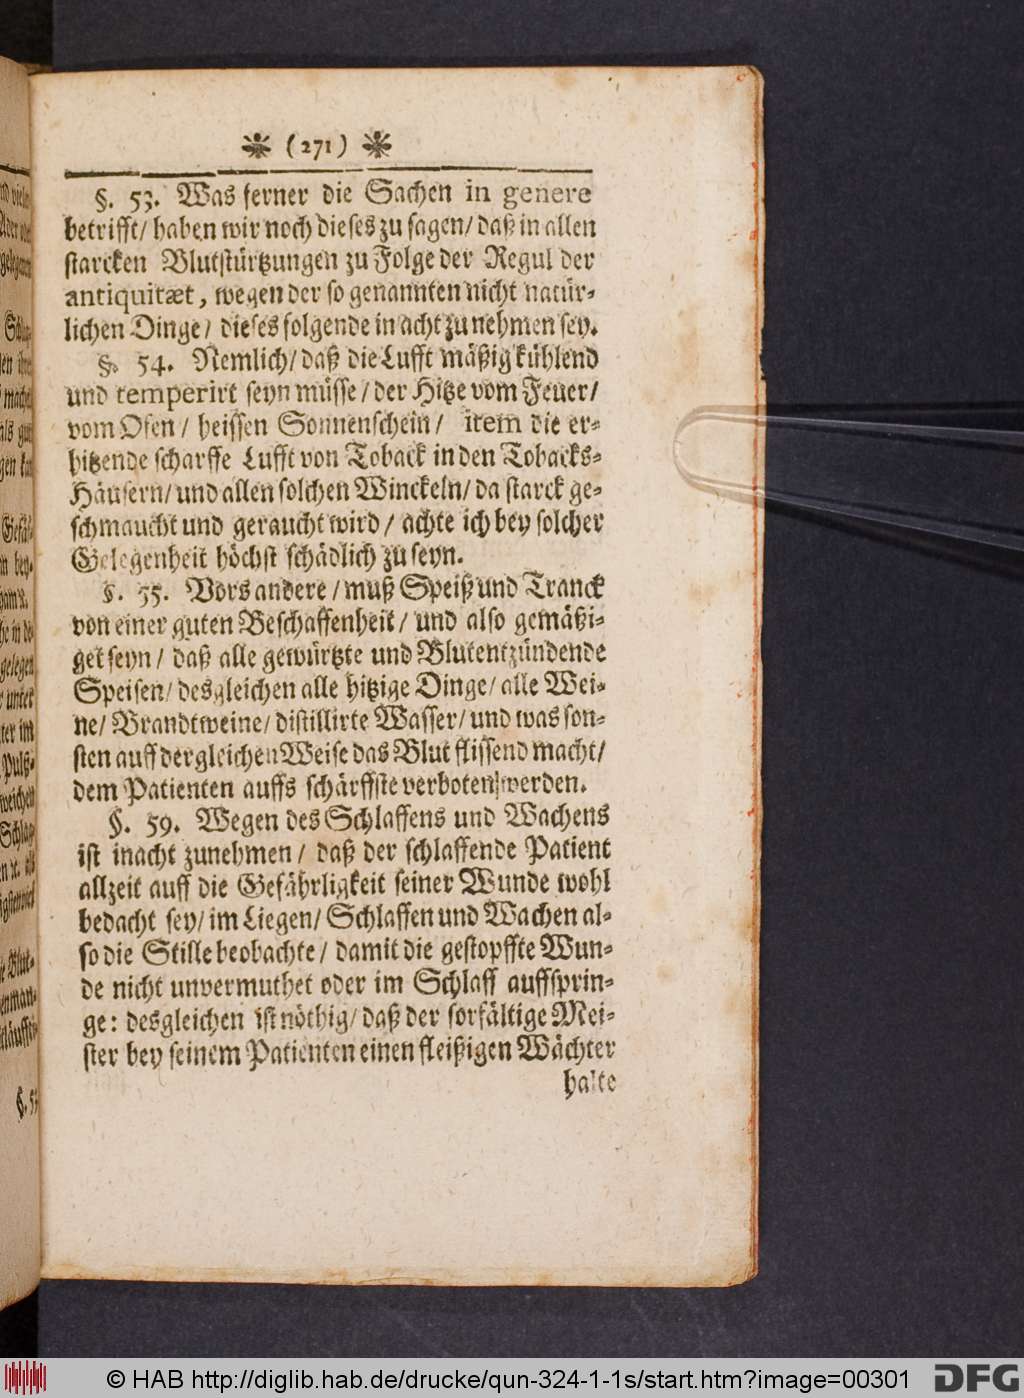 ❋ (271) ❋
§. 53. Was ferner die Sachen in genere
betrifft/ haben wir noch dieses zu sagen/ daß in allen
starcken Blutstürtzungen zu Folge der Regul der
antiquitæt, wegen der so genannten nicht natür-
lichen Dinge/ dieses folgende in acht zu nehmen sey.
§. 54. Nemlich/ daß die Lufft mäßig kühlend
und temperirt seyn müsse/ der Hitze vom Feuer/
vom Ofen/ heissen Sonnenschein/ item die er-
hitzende scharffe Lufft von Toback in den Tobacks-
Häusern/ und allen solchen Winckeln/ da starck ge-
schmaucht und geraucht wird/ achte ich bey solcher
Gelegenheit höchst schädlich zu seyn.
§. 55. Vors andere/ muß Speiß und Tranck
von einer guten Beschaffenheit/ und also gemäßi-
get seyn/ daß alle gewürtzte und Blutentzündende
Speisen/ desgleichen alle hitzige Dinge/ alle Wei-
ne/ Brandtweine/ distillirte Wasser/ und was son-
sten auff dergleichen Weise das Blut flissend macht/
dem Patienten auffs schärffste verboten werden.
§. 59. Wegen des Schlaffens und Wachens
ist inacht zunehmen/ daß der schlaffende Patient
allzeit auff die Gefährligkeit seiner Wunde wohl
bedacht sey/ im Liegen/ Schlaffen und Wachen al-
so die Stille beobachte/ damit die gestopffte Wun-
de nicht unvermuthet oder im Schlaff auffsprin-
ge: desgleichen ist nöthig/ daß der sorfältige Mei-
ster bey seinem Patienten einen fleißigen Wächter
halte
© HAB http://diglib.hab.de/drucke/qun-324-1-1s/start.htm?image=00301
DFG